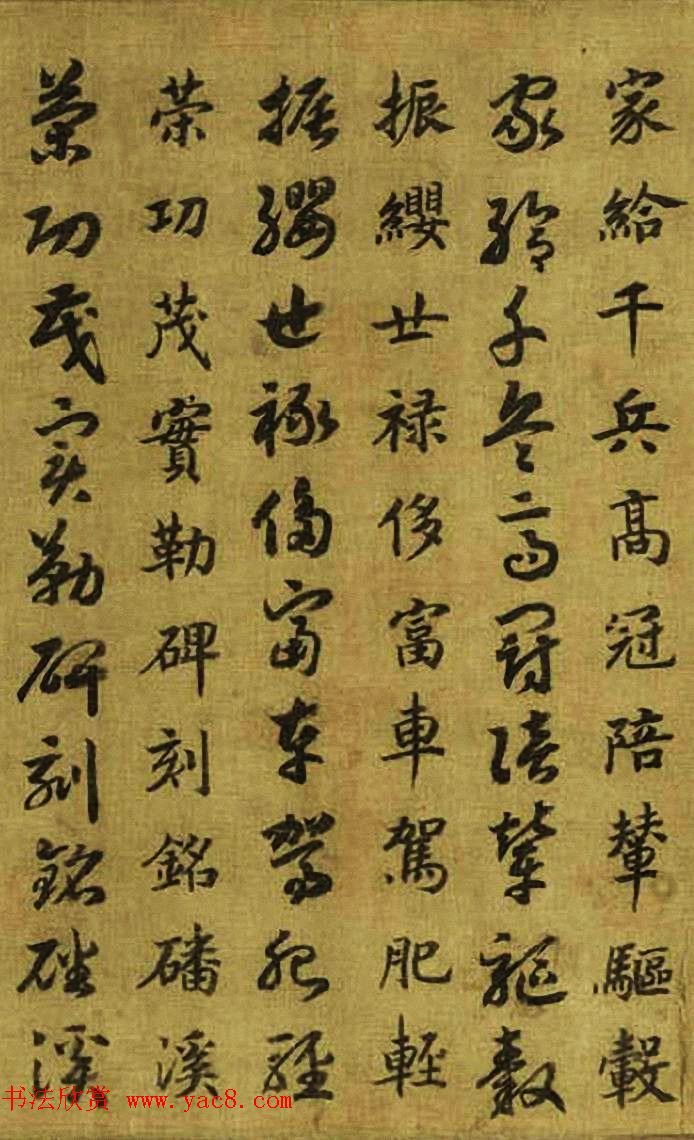 家給千兵高冠陪輦驅轂
家給千兵高冠陪輦驅轂
振纓世祿侈富車駕肥輕
振纓世祿侈富車駕肥輕
茂實勒碑刻銘磻溪
策功茂實勒碑刻銘磻溪
书法欣赏 www.yac8.com